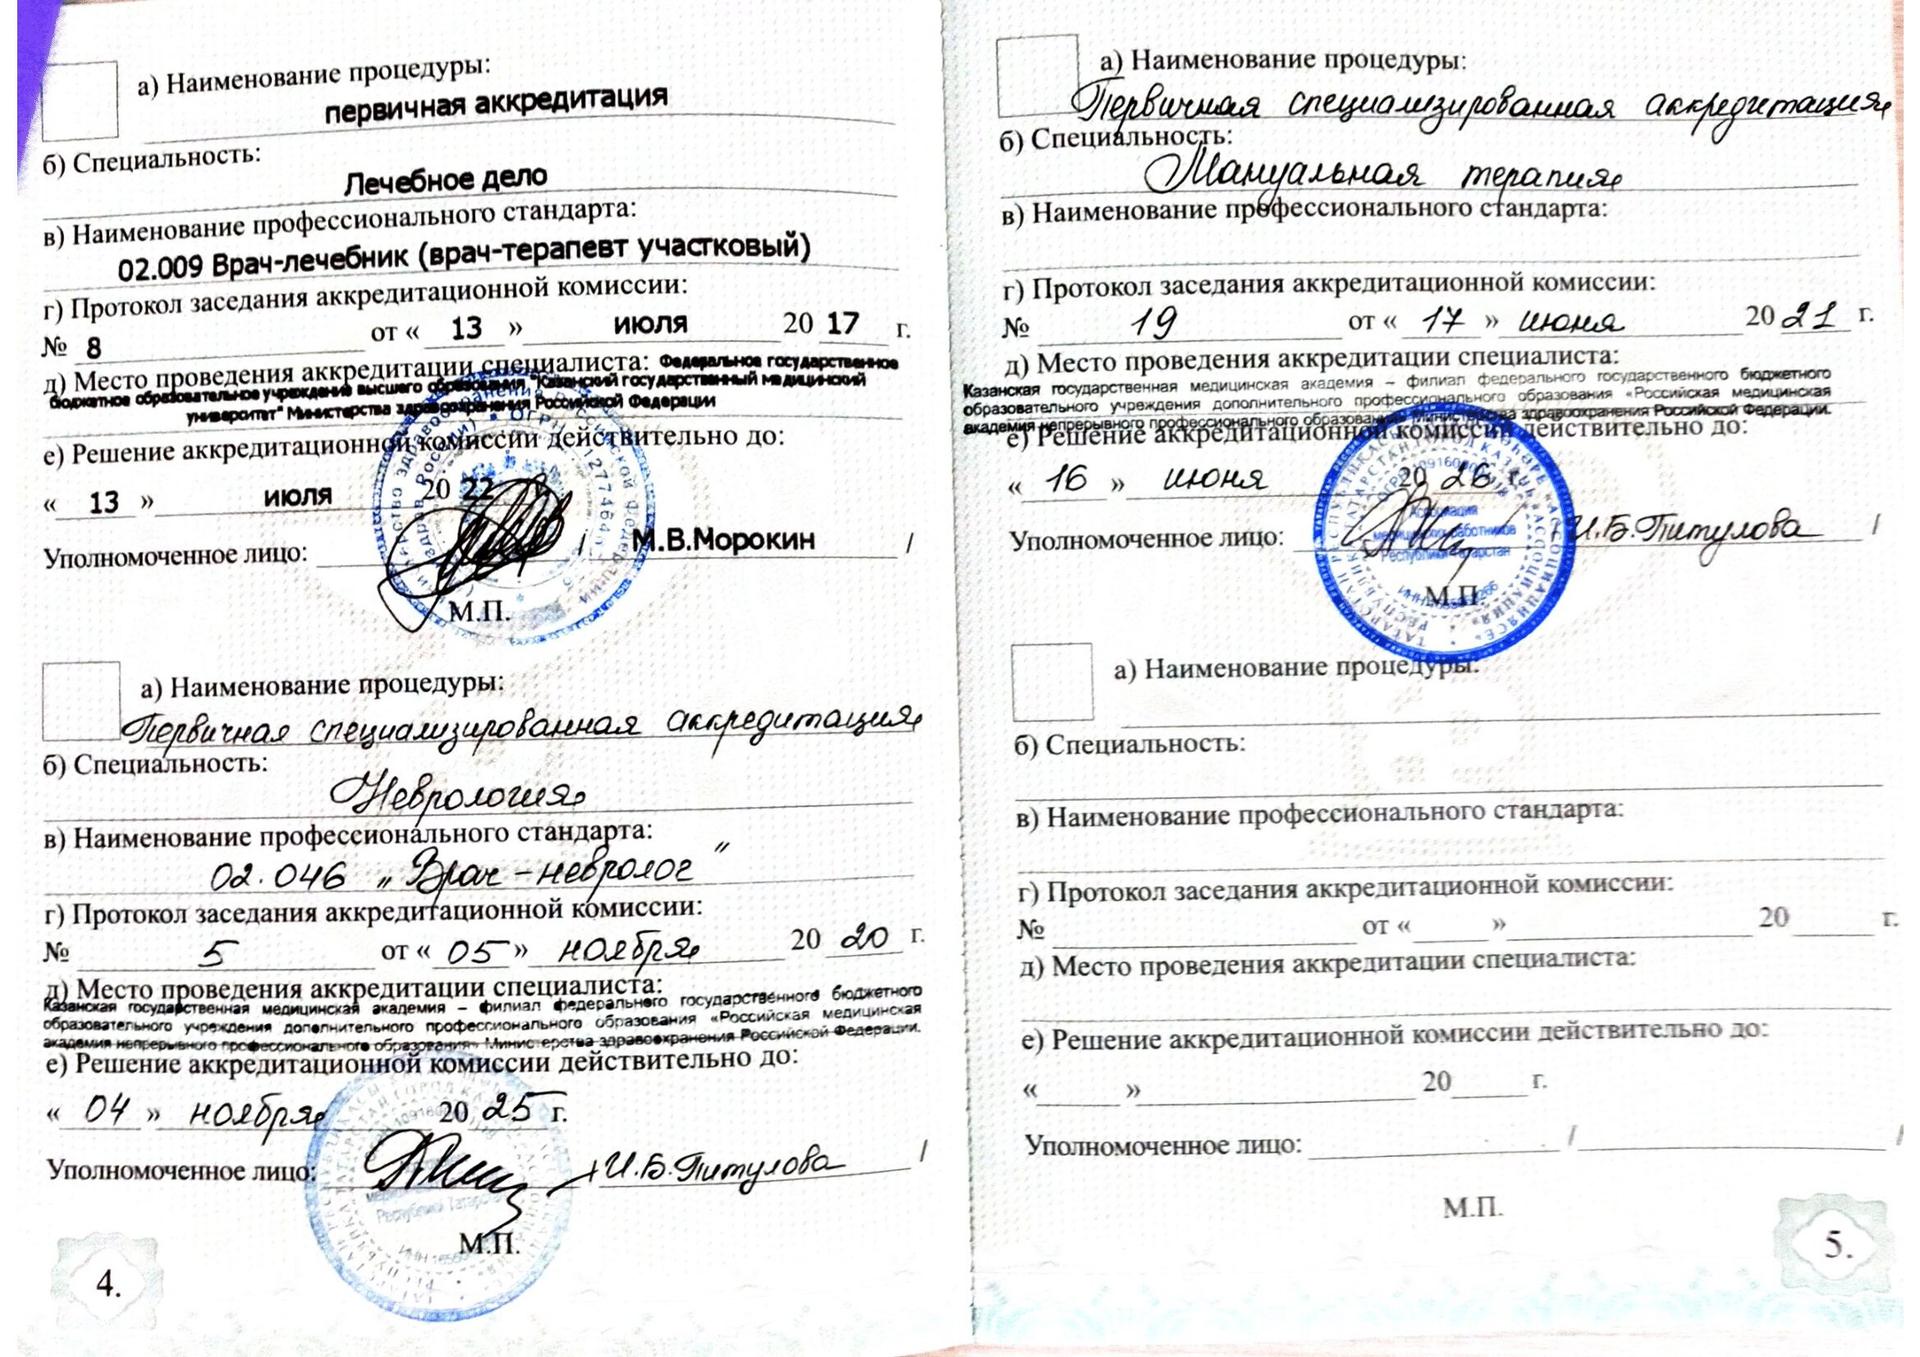 а) Наименование процедуры:
первичная аккредитация
б) Специальность:
Лечебное дело
в) Наименование профессионального стандарта:
02.009 Врач-лечебник (врач-терапевт участковый)
г) Протокол заседания аккредитационной комиссии:
№ 8 от « 13 » июля 20 17 г.
д) Место проведения аккредитации специалиста: Федеральное государственное
бюджетное образовательное учреждение высшего образования "Казанский государственный медицинский
университет" Министерства здравоохранения Российской Федерации
е) Решение аккредитационной комиссии действительно до:
« 13 » июля 20 22 г.
Уполномоченное лицо: / М.В.Морокин /
М.П.
а) Наименование процедуры:
Первичная специализированная аккредитация
б) Специальность:
Неврология
в) Наименование профессионального стандарта:
02.046 „Врач-невролог"
г) Протокол заседания аккредитационной комиссии:
№ 5 от « 05 » ноября 20 20 г.
д) Место проведения аккредитации специалиста:
Казанская государственная медицинская академия – филиал федерального государственного бюджетного
образовательного учреждения дополнительного профессионального образования «Российская медицинская
академия непрерывного профессионального образования» Министерства здравоохранения Российской Федерации.
е) Решение аккредитационной комиссии действительно до:
« 04 » ноября 20 25 г.
Уполномоченное лицо: / И.Б.Питулова /
М.П.
4.
а) Наименование процедуры:
Первичная специализированная аккредитация
б) Специальность:
Мануальная терапия
в) Наименование профессионального стандарта:
г) Протокол заседания аккредитационной комиссии:
№ 19 от « 17 » июня 20 21 г.
д) Место проведения аккредитации специалиста:
Казанская государственная медицинская академия – филиал федерального государственного бюджетного
образовательного учреждения дополнительного профессионального образования «Российская медицинская
академия непрерывного профессионального образования» Министерства здравоохранения Российской Федерации.
е) Решение аккредитационной комиссии действительно до:
« 16 » июня 20 26 г.
Уполномоченное лицо: / И.Б.Питулова /
Ассоциация
медицинских работников
Республики Татарстан
М.П.
а) Наименование процедуры:
б) Специальность:
в) Наименование профессионального стандарта:
г) Протокол заседания аккредитационной комиссии:
№ от « » 20 г.
д) Место проведения аккредитации специалиста:
е) Решение аккредитационной комиссии действительно до:
« » 20 г.
Уполномоченное лицо: / /
М.П.
5.